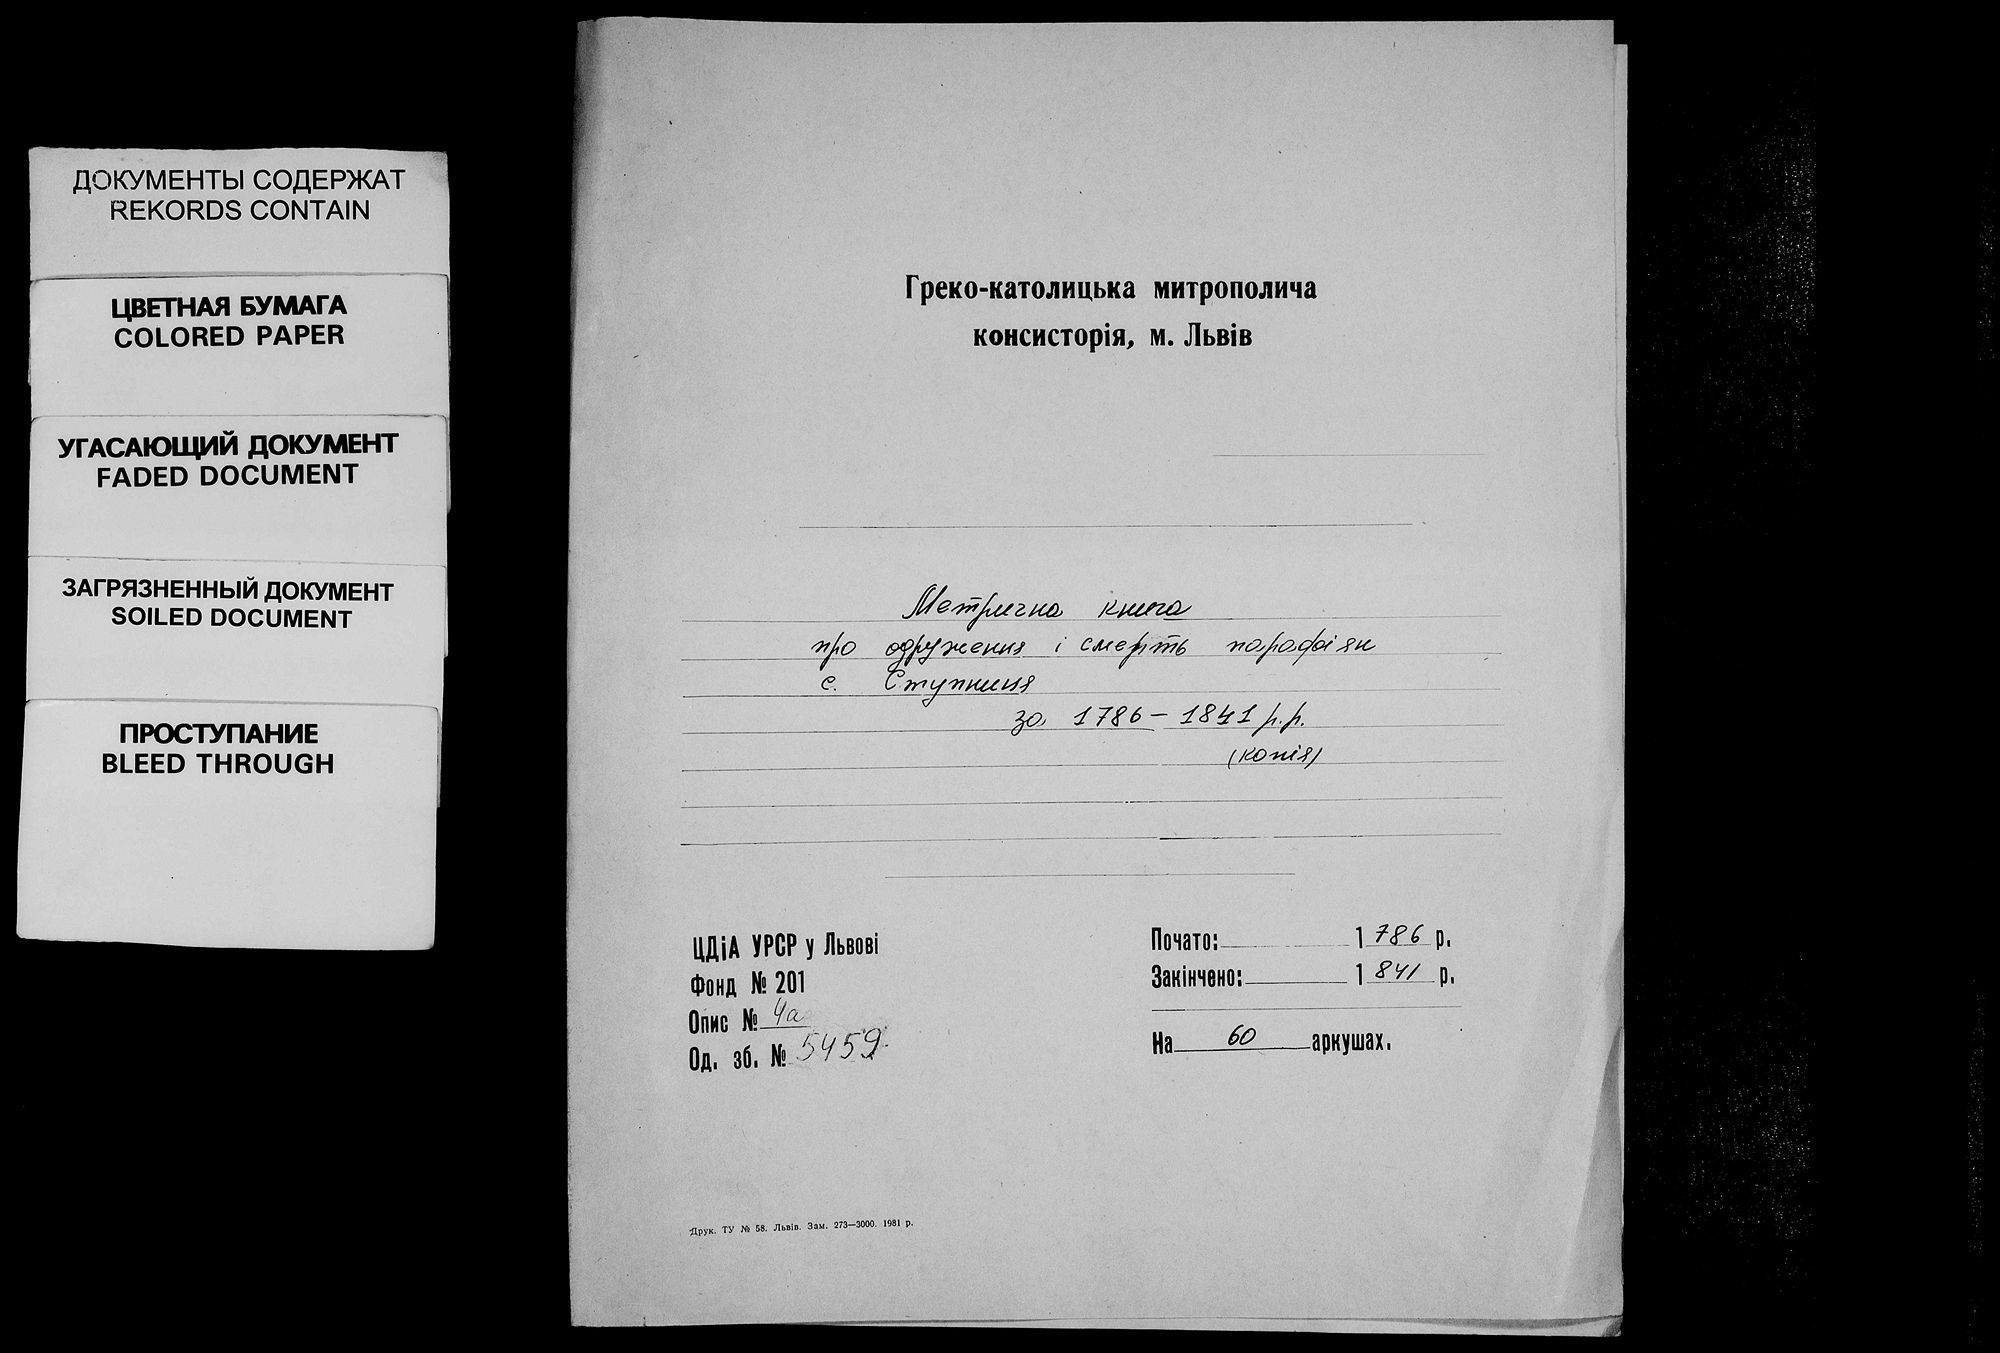 ДОКУМЕНТЫ СОДЕРЖАТ
REKORDS CONTAIN
ЦВЕТНАЯ БУМАГА
COLORED PAPER
УГАСАЮЩИЙ ДОКУМЕНТ
FADED DOCUMENT
ЗАГРЯЗНЕННЫЙ ДОКУМЕНТ
SOILED DOCUMENT
ПРОСТУПАНИЕ
BLEED THROUGH
Греко-католицька митрополича
консисторія, м. Львів
Метрична книга
про одруження і смерть парафіян
с. Ступниця
за 1786 – 1841 р.р.
(копія)
ЦДіА УРСР у Львові
Фонд № 201
Опис № 4а
Од. зб. № 5459.
Почато: 1786 р.
Закінчено: 1841 р.
На 60 аркушах.
Друк. ТУ № 58. Львів. Зам. 273—3000. 1981 р.